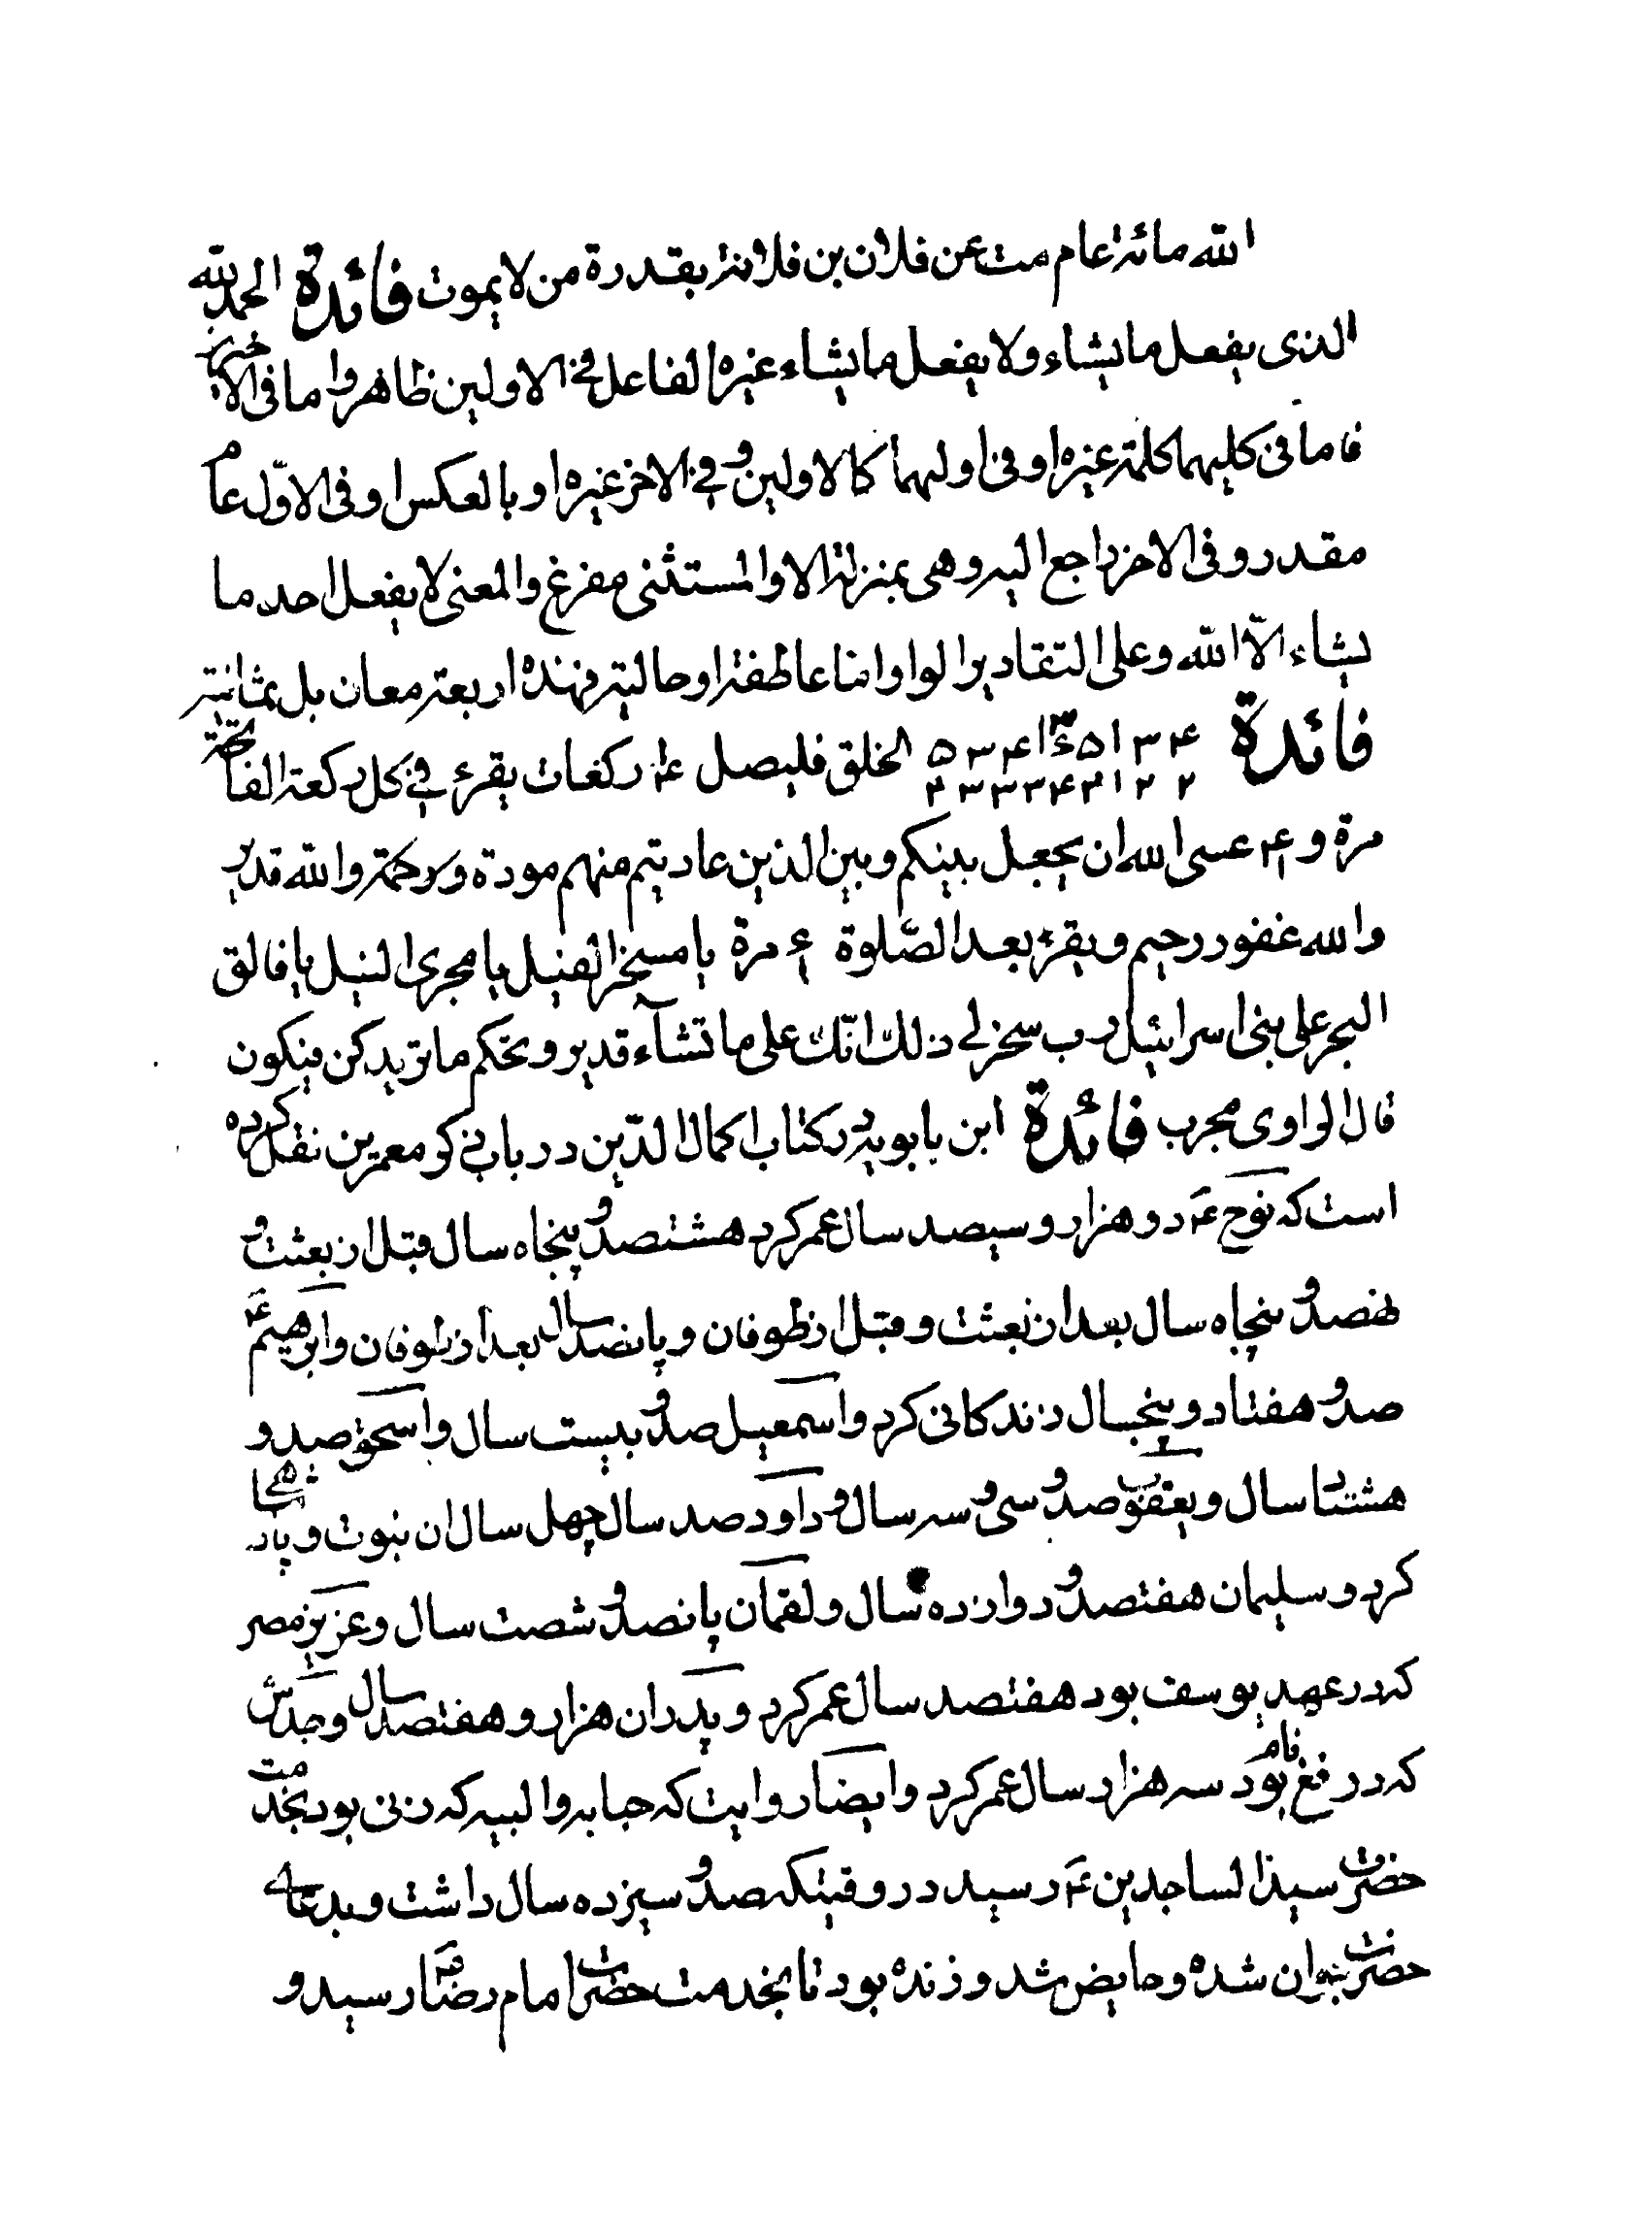 الله مائة عام مت عن فلان بن فلانة بقدرة من لا يموت فائدة الحمد لله
الذى يفعل ما يشاء ولا يفعل ما يشاء غيره الفاعل فى الاولين ظاهر واما فى الاخيرين
فاما فى كليهما كلمة غيره او فى اولهما كالاولين وفى الاخر غيره او بالعكس او فى الاوّل عام
مقدر وفى الاخر راجع اليه وهى بمنزلة الا والمستثنى مفرغ والمعنى لا يفعل احد ما
يشاء الّا الله وعلى التقادير الواو اما عاطفة او حالية فهذه اربعة معان بل ثمانية
فائدة الخلق فليصل ۴ ركعات يقرئ فى كل ركعة الفاتحة
مرة و ۴ عسى الله ان يجعل بينكم وبين الذين عاديتم منهم مودة ورحمة والله قدير
والله غفور رحيم ويقرء بعد الصّلوة مرة يا مسخر الفيل يا مجرى النيل يا فالق
البحر على بنى اسرائيل رب سخر لى ذلك انّك على ما تشآء قدير وتحكم ما تريد كن فيكون
قال الراوى مجرب فائدة ابن بابويه در كتاب اكمال الدّين در باب ذكر معمرين نقل كرده
است كه نوح ع دو هزار و سيصد سال عمر كرد هشتصد و پنجاه سال قبل از بعثت و
نهصد و پنجاه سال بعد از بعثت و قبل از طوفان و پانصد سال بعد از طوفان و ابرهيم ع
صد و هفتاد و پنجسال زندكانى كرد و اسمعيل صد و بيست سال و اسحق صد و
هشتاد سال و يعقوب صد و سى و سه سال و داود صد سال چهل سال ان نبوت و پادشاهى
كرد و سليمان هفتصد و دوازده سال و لقمان پانصد و شصت سال و عزيز مصر
كه در عهد يوسف بود هفتصد سال عمر كرد و پدر ان هزار و هفتصد سال و جدش
كه در فغ نام بود سه هزار سال عمر كرد و ايضا روايت كه حبابه والبيه كه زنى بود بخدمت
حضرت سيد الساجدين ع رسيد در وقتيكه صد و سيزده سال داشت و بدعاى
حضرت جوان شده و حايض شد و زنده بود تا بخدمت حضرت امام رضا ع رسيد و